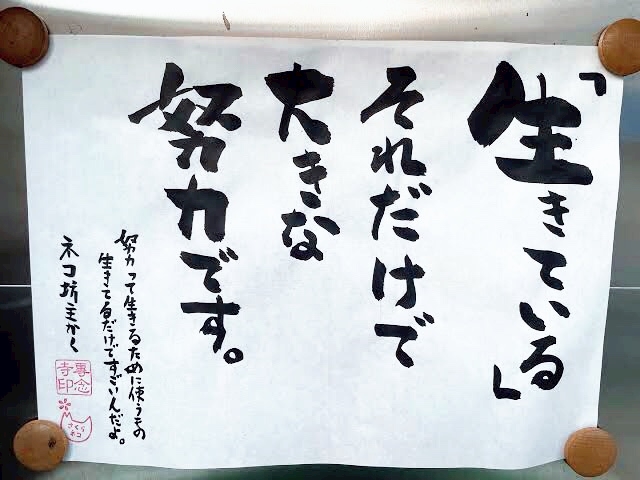 「生きている」
それだけで
大きな
努力です。
努力って生きるために使うもの
生きてるだけですごいんだよ。
ネコ坊主かく
専念
寺印
さくら
ネコ